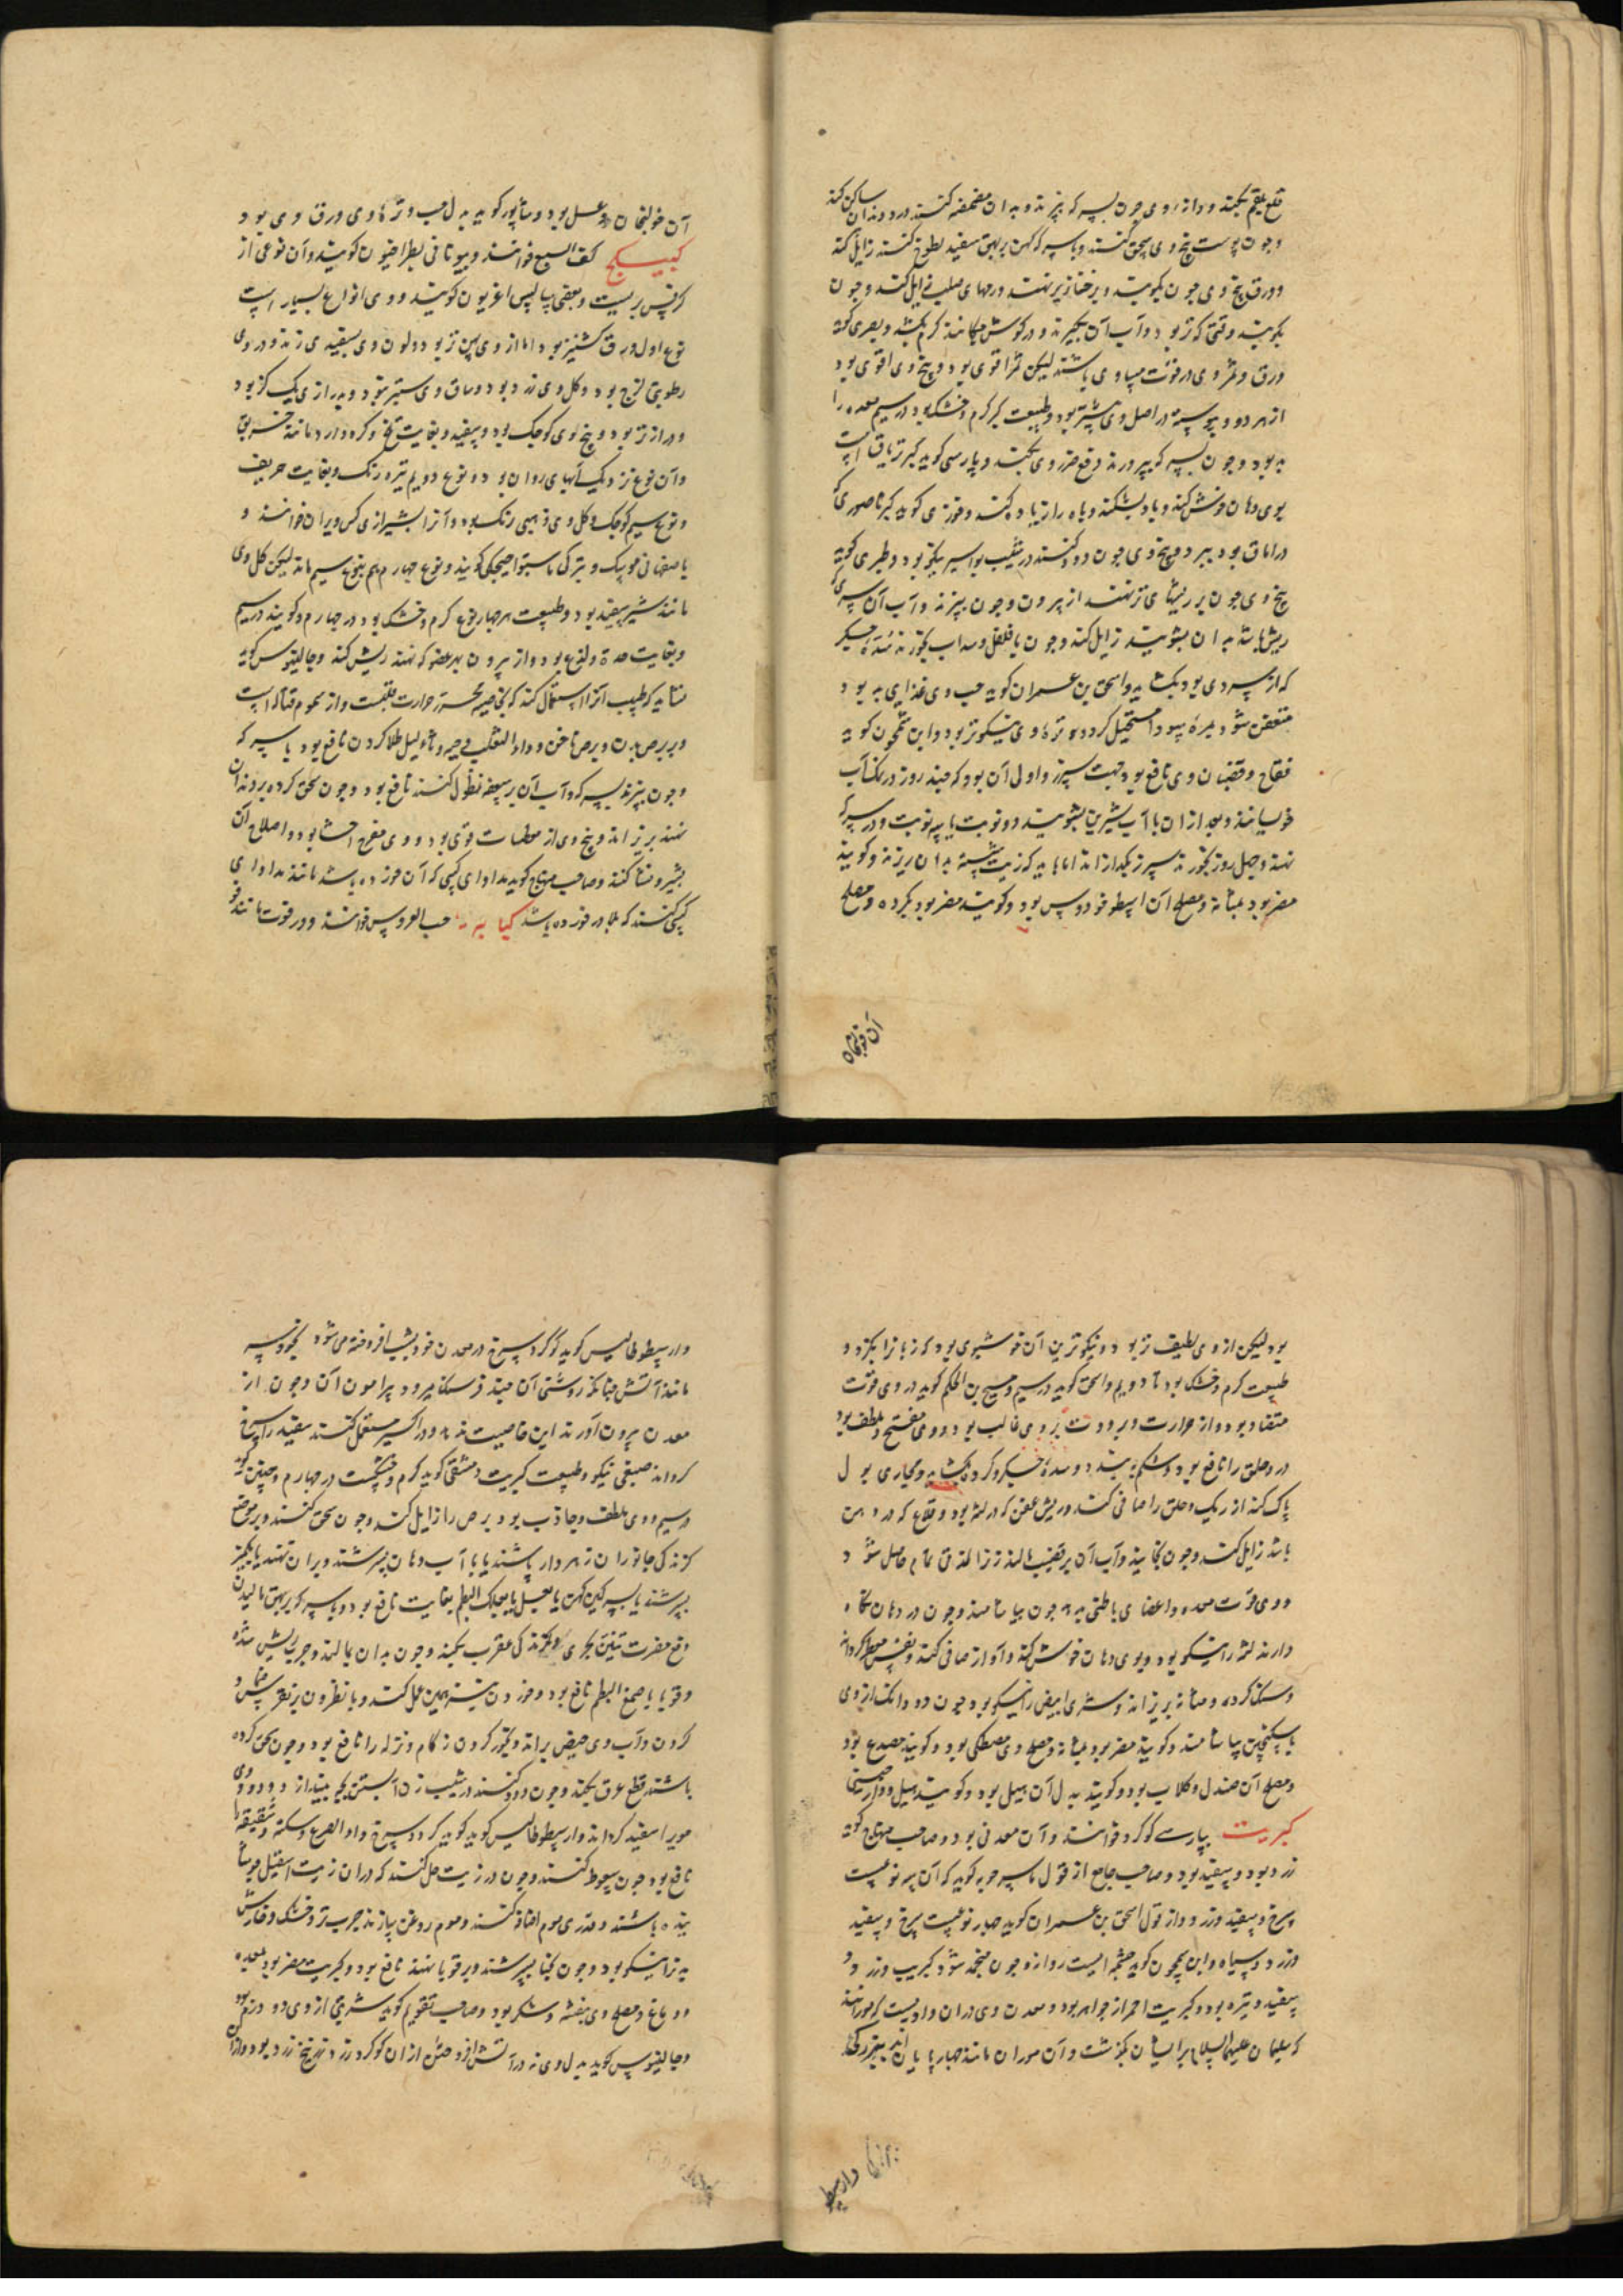 قلع بلغم بکند و دازی وی چون بسرکه بپزند و بدان مضمضه کنند درد دندان ساکن کند
وچون پوست بیخ وی سحق کنند وبا سرکه کهن بر بهق سفید لطوخ کنند زایل کند
وورق بیخ وی چون بکوبند و برخنازیر نهند ورمهای صلب زایل کند وچون
بکوبند وقتی که تر بود وآب آن بگیرند و در کوش چکانند کرم بکشد و بصری کوید
ورق وثمر وی در قوت مساوی باشند لیکن ثمر اقوی بود و بیخ وی اقوی بود
از هر دو و پوست در اصل وی بیشتر بود وطبیعت کبر کرم وخشک بود در سیم معده را
بد بود وچون بسرکه بپرورند دفع ضرر وی بکند وپارسی کوید کبر تریاق است
بوی دهان خوش کند وباد بشکند وباه را زیاده کند وخوزی کوید کبر ناصوری که
در اماق بود ببرد وبیخ وی چون دود کنند در شیب بواسیر نیکو بود وطبری کوید
بیخ وی چون بر ریشهای تر نهند از بیرون وچون بپزند وآب آن سری که
ریش باشد بدان بشویند زایل کند وچون با فلفل وسداب بخورند سده جگر
که از سردی بود بکشاید واسحق بن عمران کوید حب وی غذای بد بود
متعفن شود بمره سودا مستحیل کردد وتره وی نیکوتر بود وابن سمجون کوید
فقاح وقضبان وی نافع بود جهت سپرز واولی آن بود که چند روز در نمک آب
خوسیانند وبعد ازان باآب شیرین بشویند دو نوبت یا سه نوبت ودر سرکه
نهند وچهل روز بخورند سپرز بکدازاند اما باید که زیت شسته بدان ریزند وکویند
مضر بود بمثانه ومصلح آن اسطوخودوس بود وکویند مضر بود بکرده ومصلح
آن خولنجان وعسل بود وسابور کوید بدل حب وتره وی ورق وی بود
کبیکج کف السبع خوانند وبیونانی بطراخیون کویند وآن نوعی از
کرفس بریست وبعضی بیابلس اغریون کویند ووی انواع بسیار است
نوع اول ورق کشنیز بود اما از وی پهن تر بود ولون وی بسفیدی زند ودر وی
رطوبتی لزج بود وکل وی زرد بود وساق وی ستبر نبود ودرازی یک کز بود
ودراز تر بود وبیخ وی کوچک بود وسفید وبغایت تلخ وکره دارد مانند خربق
وآن نوع نزدیک آبهای روان بود ونوع دویم تیره رنک وبغایت حریف
ونوع سیم کوچک وکل وی ذهبی رنک بود وآنرا بشیرازی کس ویران خوانند و
باصفهانی موسک وبترکی ماستوا جیچکی کویند ونوع چهارم هم بنوع سیم ماند لیکن کل وی
مانند شیر سفید بود وطبیعت هر چهار نوع کرم وخشک بود در چهارم وکویند در سیم
وبغایت حدة ولذع بود واز بیرون بهر عضو که نهند ریش کند وجالینوس کوید
نشاید که طبیب آنرا استعمال کند که بخاصیه محرق حرارت خلقت واز سموم قتاله است
وبر برص بدن وبرص ناخن وداء الثعلب وحیه وثالیل طلا کردن نافع بود باسرکه
وچون بپزند بسرکه وآب آن بر سعفه نطول کنند نافع بود وچون سحق کرده بر دندان
نهند بریزاند وبیخ وی از معطسات قوی بود ووی مقرح احشا بود واصلاح آن
بشیر ونشا کنند وصاحب منهاج کوید مداوای کسی که آن خورده باشد مانند مداوای
کسی کنند که بلادر خورده باشد کبابه حب العروس خوانند ودر قوت مانند فو
آن خولنجان
بود لیکن از وی لطیف تر بود ونیکوترین آن خوشبوی بود که زبانرا بکزد و
طبیعت کرم وخشک بود تا دویم واسحق کوید در سیم ومسیح بن الحکم کوید در وی قوت
متضاد بود از حرارت وبرودت بر وی غالب بود ووی مفتح وملطف بود
درد حلق را نافع بود وشکم ببندد وسده جکر وکرده بکشاید ومجاری بول
پاک کند از ریک وحلق را صافی کند وریش عفن که در لثه بود وقلاع که در دهن
باشد زایل کند وچون بخایند وآب آن بر قضیب مالند زنرا لذتی تمام حاصل شود
ووی قوت معده واعضای باطنی بدهد چون بیاشامند وچون در دهان نکاه
دارند لثه را نیکو بود وبوی دهان خوش کند وآواز صافی کند ونفس معطر کرداند
وسنک کرده ومثانه بریزاند وشری ابیض را نیکو بود چون دو دانک از وی
باسکنجبین بیاشامند وکویند مضر بود بمثانه ومصلح وی مصطکی بود وکویند مصدع بود
ومصلح آن صندل وکلاب بود وکویند بدل آن هیل بود وکویند هیل ودارچینی
کبریت بپارسی کوکرد خوانند وآن معدنی بود وصاحب منهاج کوید
زرد بود وسفید بود وصاحب جامع از قول ماسرجویه کوید که آن سه نوعست
سرخ وسفید وزرد واز قول اسحق بن عمران کوید چهار نوعست سرخ وسفید
وزرد وسیاه وابن سمجون کوید چشمه ایست روانه وچون منجمد شود کبریت وزرد و
سفید وتیره بود وکبریت احمر از جواهر بود ومعدن وی دران وادیست که مورانند
که سلیمان علیه السلام بر ایشان بگذشت وآن موران مانند چهارپایان اند ببزرکی
وارسطو
وارسطوطالیس کوید کوکرد سرخ در معدن خود بشب افروخته می شود بخودی خود
مانند آتش چنانکه روشنی آن چند فرسنک میرود پیرامون آن وچون از
معدن بیرون آورند این خاصیت ندارد ودر اکسیر مستعمل کنند سفید را سرخ
کرداند صبغی نیکو وطبیعت کبریت دمشقی کوید کرم وخشکست در چهارم وحنین کوید
در سیم ووی ملطف وجاذب بود وبرص را زایل کند وچون سحق کنند وبر موضع
کزندکی جانوران زهردار پاشند یا باآب دهان بسرشند وبران نهند یا بانکبین
بسرشند یا بسرکین کهن یا بعسل یا بعلک البطم بغایت نافع بود وباسرکه بر بهق مالیدن
دفع مضرت تنین بحری وکزندکی عقرب بکند وچون بدان بمالند وجرب ریش شده
وقوبا باصمغ البطم نافع بود وخوردن نیز همین عمل کند وبا نطرون بر نقرس ضماد
کردن وآب وی حیض براند وبخور کردن زکام ونزله را نافع بود وچون سحق کرده
باشند قطع عرق بکند وچون دود کنند در شیب زن آبستن بچه بیندازد ودود وی
مویرا سفید کرداند وارسطوطالیس کوید کوکرد سرخ داء الصرع وسکته وشقیقه را
نافع بود چون سعوط کنند وچون در زیت حل کنند که دران زیت اسقیل جوشا
نیده باشند وقدری موم اضافه کنند وموم روغن سازند جرب تر وخشک وخارش
بدن را نیکو بود وچون بحنا بسرشند وبر قوبا نهند نافع بود وکبریت مضر بود بمعده
ودماغ ومصلح وی بنفشه وشکر بود وصاحب تقویم کوید شربتی از وی دو درم بود
وجالینوس کوید بدل وی در آتش افروختن ازان کوکرد زرد زرنیخ زرد بود ووزن آن